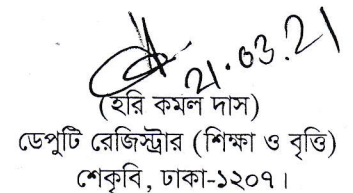 21.03.21
(হরি কমল দাস)
ডেপুটি রেজিস্ট্রার (শিক্ষা ও বৃত্তি)
শেকৃবি, ঢাকা-১২০৭।